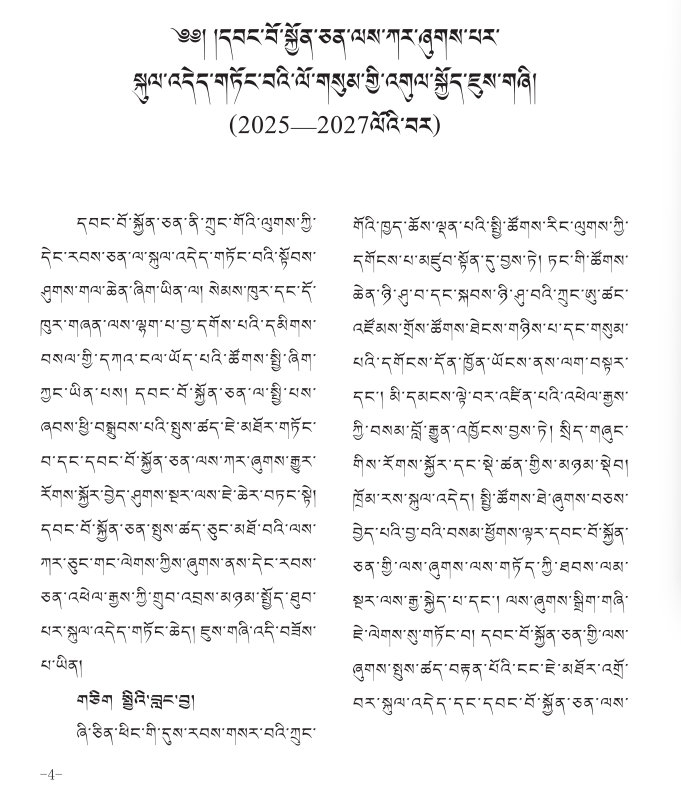 ༄༅། །དབང་པོ་སྐྱོན་ཅན་ལས་ཀར་ཞུགས་པར་
སྐུལ་འདེད་གཏོང་བའི་ལོ་གསུམ་གྱི་འགུལ་སྐྱོད་ཇུས་གཞི།
(2025—2027ལོའི་བར)
དབང་པོ་སྐྱོན་ཅན་ནི་ཀྲུང་གོའི་ལུགས་ཀྱི་
དེང་རབས་ཅན་ལ་སྐུལ་འདེད་གཏོང་བའི་སྟོབས་
ཤུགས་གལ་ཆེན་ཞིག་ཡིན་ལ། སེམས་ཁུར་དང་དོ་
ཁུར་གཞན་ལས་ལྷག་པ་བྱ་དགོས་པའི་དམིགས་
བསལ་གྱི་དཀའ་ངལ་ཡོད་པའི་ཚོགས་སྤྱི་ཞིག་
ཀྱང་ཡིན་པས། དབང་པོ་སྐྱོན་ཅན་ལ་སྤྱི་པས་
ཞབས་ཕྱི་བསྒྲུབས་པའི་སྤུས་ཚད་ཇེ་མཐོར་གཏོང་
བ་དང་དབང་པོ་སྐྱོན་ཅན་ལས་ཀར་ཞུགས་རྒྱུར་
རོགས་སྐྱོར་བྱེད་ཤུགས་སྔར་ལས་ཇེ་ཆེར་བཏང་སྟེ།
དབང་པོ་སྐྱོན་ཅན་སྤུས་ཚད་ཅུང་མཐོ་བའི་ལས་
ཀར་ཅུང་གང་ལེགས་ཀྱིས་ཞུགས་ནས་དེང་རབས་
ཅན་འཕེལ་རྒྱས་ཀྱི་གྲུབ་འབྲས་མཉམ་སྤྱོད་ཐུབ་
པར་སྐུལ་འདེད་གཏོང་ཆེད། ཇུས་གཞི་འདི་བཟོས་
པ་ཡིན།
གཅིག སྤྱིའི་བླང་བྱ།
ཞི་ཅིན་ཕིང་གི་དུས་རབས་གསར་བའི་ཀྲུང་
གོའི་ཁྱད་ཆོས་ལྡན་པའི་སྤྱི་ཚོགས་རིང་ལུགས་ཀྱི་
དགོངས་པ་མཛུབ་སྟོན་དུ་བྱས་ཏེ། ཏང་གི་ཚོགས་
ཆེན་ཉི་ཤུ་བ་དང་སྐབས་ཉི་ཤུ་བའི་ཀྲུང་ཨུ་ཚང་
འཛོམས་གྲོས་ཚོགས་ཐེངས་གཉིས་པ་དང་གསུམ་
པའི་དགོངས་དོན་ཁྱོན་ཡོངས་ནས་ལག་བསྟར་
དང་། མི་དམངས་ལྟེ་བར་འཛིན་པའི་འཕེལ་རྒྱས་
ཀྱི་བསམ་བློ་རྒྱུན་འཁྱོངས་བྱས་ཏེ། སྲིད་གཞུང་
གིས་རོགས་སྐྱོར་དང་སྡེ་ཚན་གྱིས་མཉམ་སྡེབ།
ཁྲོམ་རས་སྐུལ་འདེད། སྤྱི་ཚོགས་ཐེ་ཞུགས་བཅས་
བྱེད་པའི་བྱ་བའི་བསམ་ཕྱོགས་ལྟར་དབང་པོ་སྐྱོན་
ཅན་གྱི་ལས་ཞུགས་ལས་གཏོད་ཀྱི་ཐབས་ལམ་
སྔར་ལས་རྒྱ་སྐྱེད་པ་དང་། ལས་ཞུགས་སྒྲིག་གཞི་
ཇེ་ལེགས་སུ་གཏོང་བ། དབང་པོ་སྐྱོན་ཅན་གྱི་ལས་
ཞུགས་སྤུས་ཚད་བརྟན་པོའི་ངང་ཇེ་མཐོར་འགྲོ་
བར་སྐུལ་འདེད་དང་དབང་པོ་སྐྱོན་ཅན་ལས་
-4-